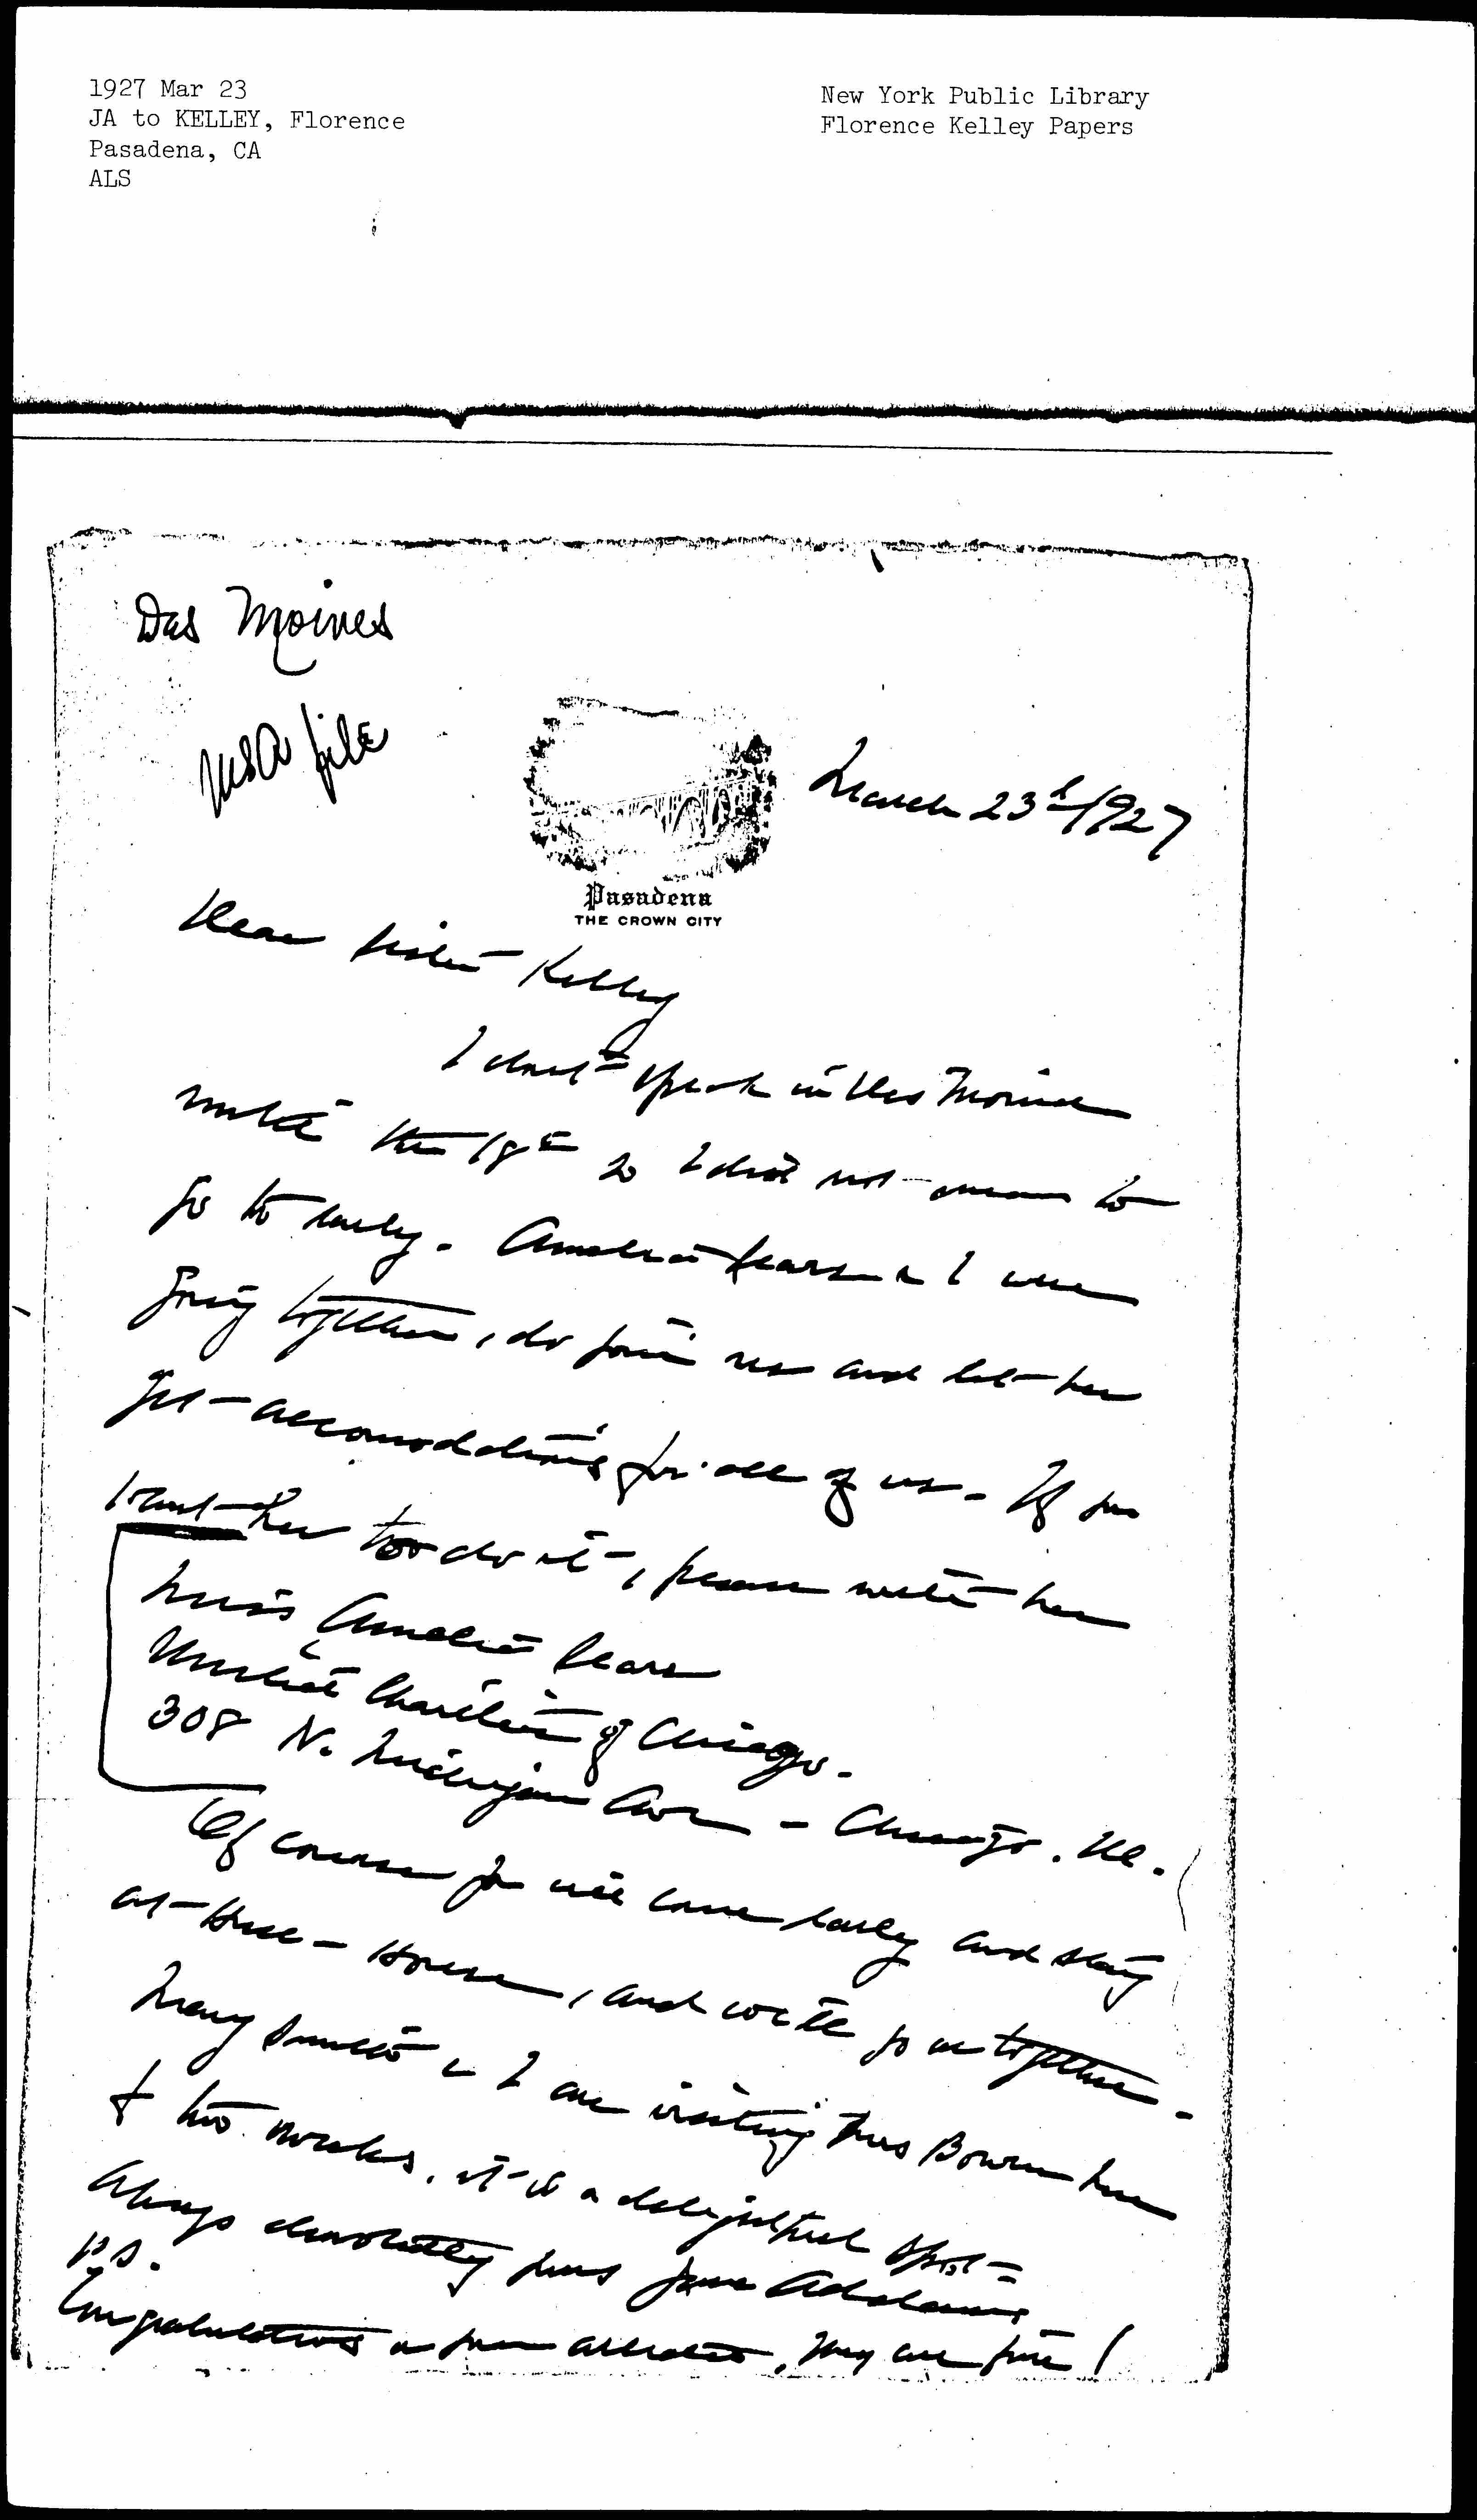 1927 Mar 23
JA to KELLEY, Florence
Pasadena, CA
ALS
New York Public Library
Florence Kelley Papers
Des Moines
file
March 23d 1927
Pasadena
THE CROWN CITY
Dear Sister Kelley
I don't speak in Des Moines
until the 18th so I did not mean to
go to early. Amelia Sears & I were
going together, do join us and let her
get accomodations for all of us. If you
want her too do it, please write her
Miss Amelia Sears
United Charities of Chicago.
308 N. Michigan Ave - Chicago. Ill.
Of course you will come early and stay
at Hull-House, and we'll go on together.
Mary Smith & I are visiting Mrs Bowen here
for two weeks. it is a delightful spot
Always devotedly yours Jane Addams
P.S.
Congratulations on your articles, they are fine!